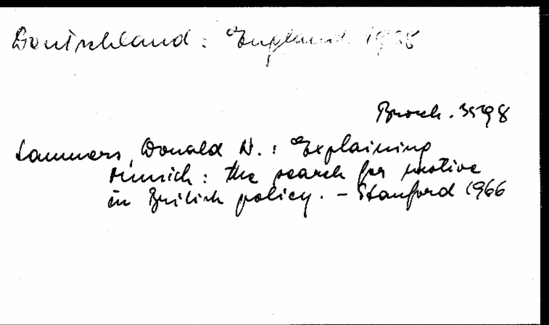 Deutschland: England 19
Brosch. 3598
Lammers, Donald N.: Explaining
Munich: the search for motive
in British policy. - Stanford 1966